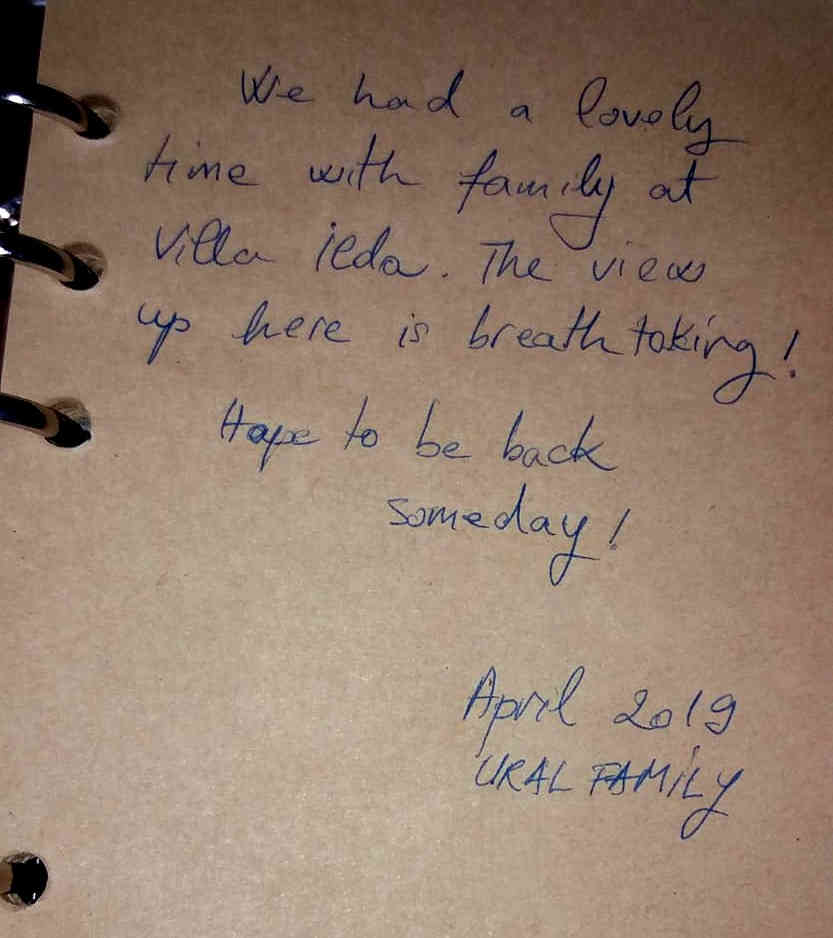 We had a lovely
time with family at
Villa ilda. The view
up here is breathtaking!
Hope to be back
someday!
April 2019
URAL FAMiLY